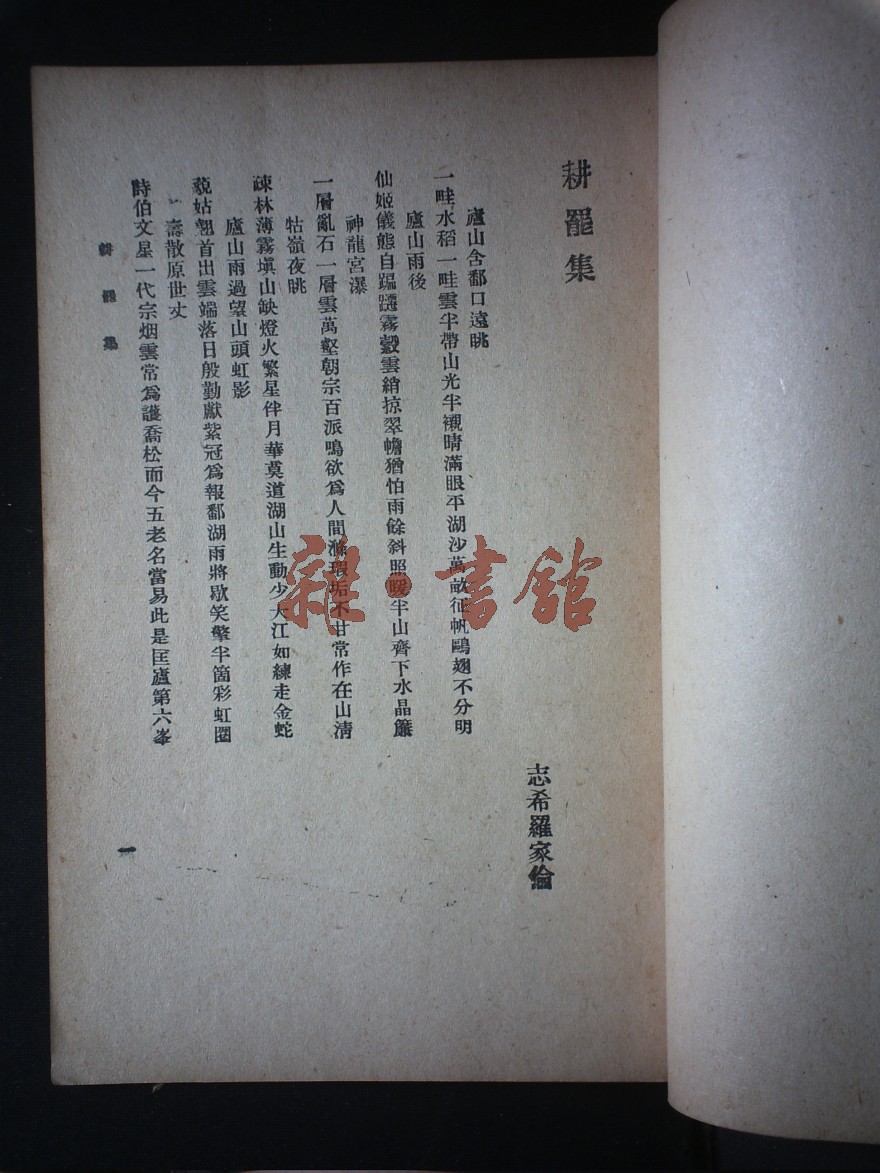 耕罷集
志希羅家倫
廬山含鄱口遠眺
一畦水稻一畦雲半帶山光半襯晴滿眼平湖沙萬畝征帆鷗翅不分明
廬山雨後
仙姬儀態自蹁躚霧縠雲綃掠翠幨猶怕雨餘斜照暖半山齊下水晶簾
神龍宮瀑
一層亂石一層雲萬壑朝宗百派鳴欲爲人間滌瑕垢不甘常作在山清
牯嶺夜眺
疎林薄霧塡山缺燈火繁星伴月華莫道湖山生動少大江如練走金蛇
廬山雨過望山頭虹影
藐姑翹首出雲端落日殷勤獻紫冠爲報鄱湖雨將歇笑擎半箇彩虹圈
壽散原世丈
詩伯文星一代宗烟雲常爲護喬松而今五老名當易此是匡廬第六峯
耕罷集
一
雜·書館